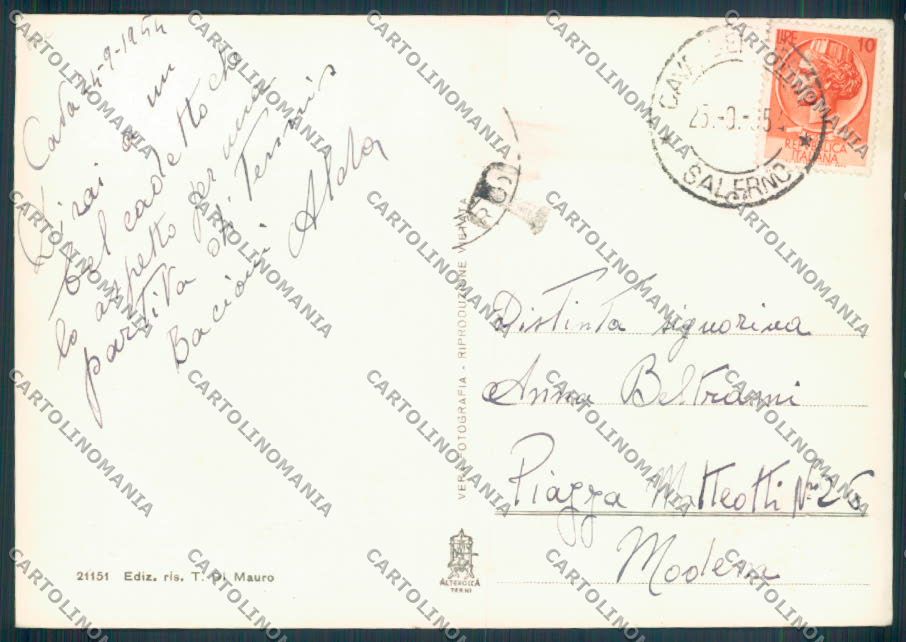 Cava 24-9-1954
Dirai a un
bel cadetto che
lo aspetto per una
partita di Tennis
Bacioni Alda
LIRE 10
REPUBBLICA
ITALIANA
SALERNO
Distinta signorina
Anna Beltrami
Piazza Matteotti Nr 26
Modena
VERA FOTOGRAFIA - RIPRODUZIONE VIETATA
21151 Ediz. ris. T. Di Mauro
ALTEROCCA
TERNI
CARTOLINOMANIA